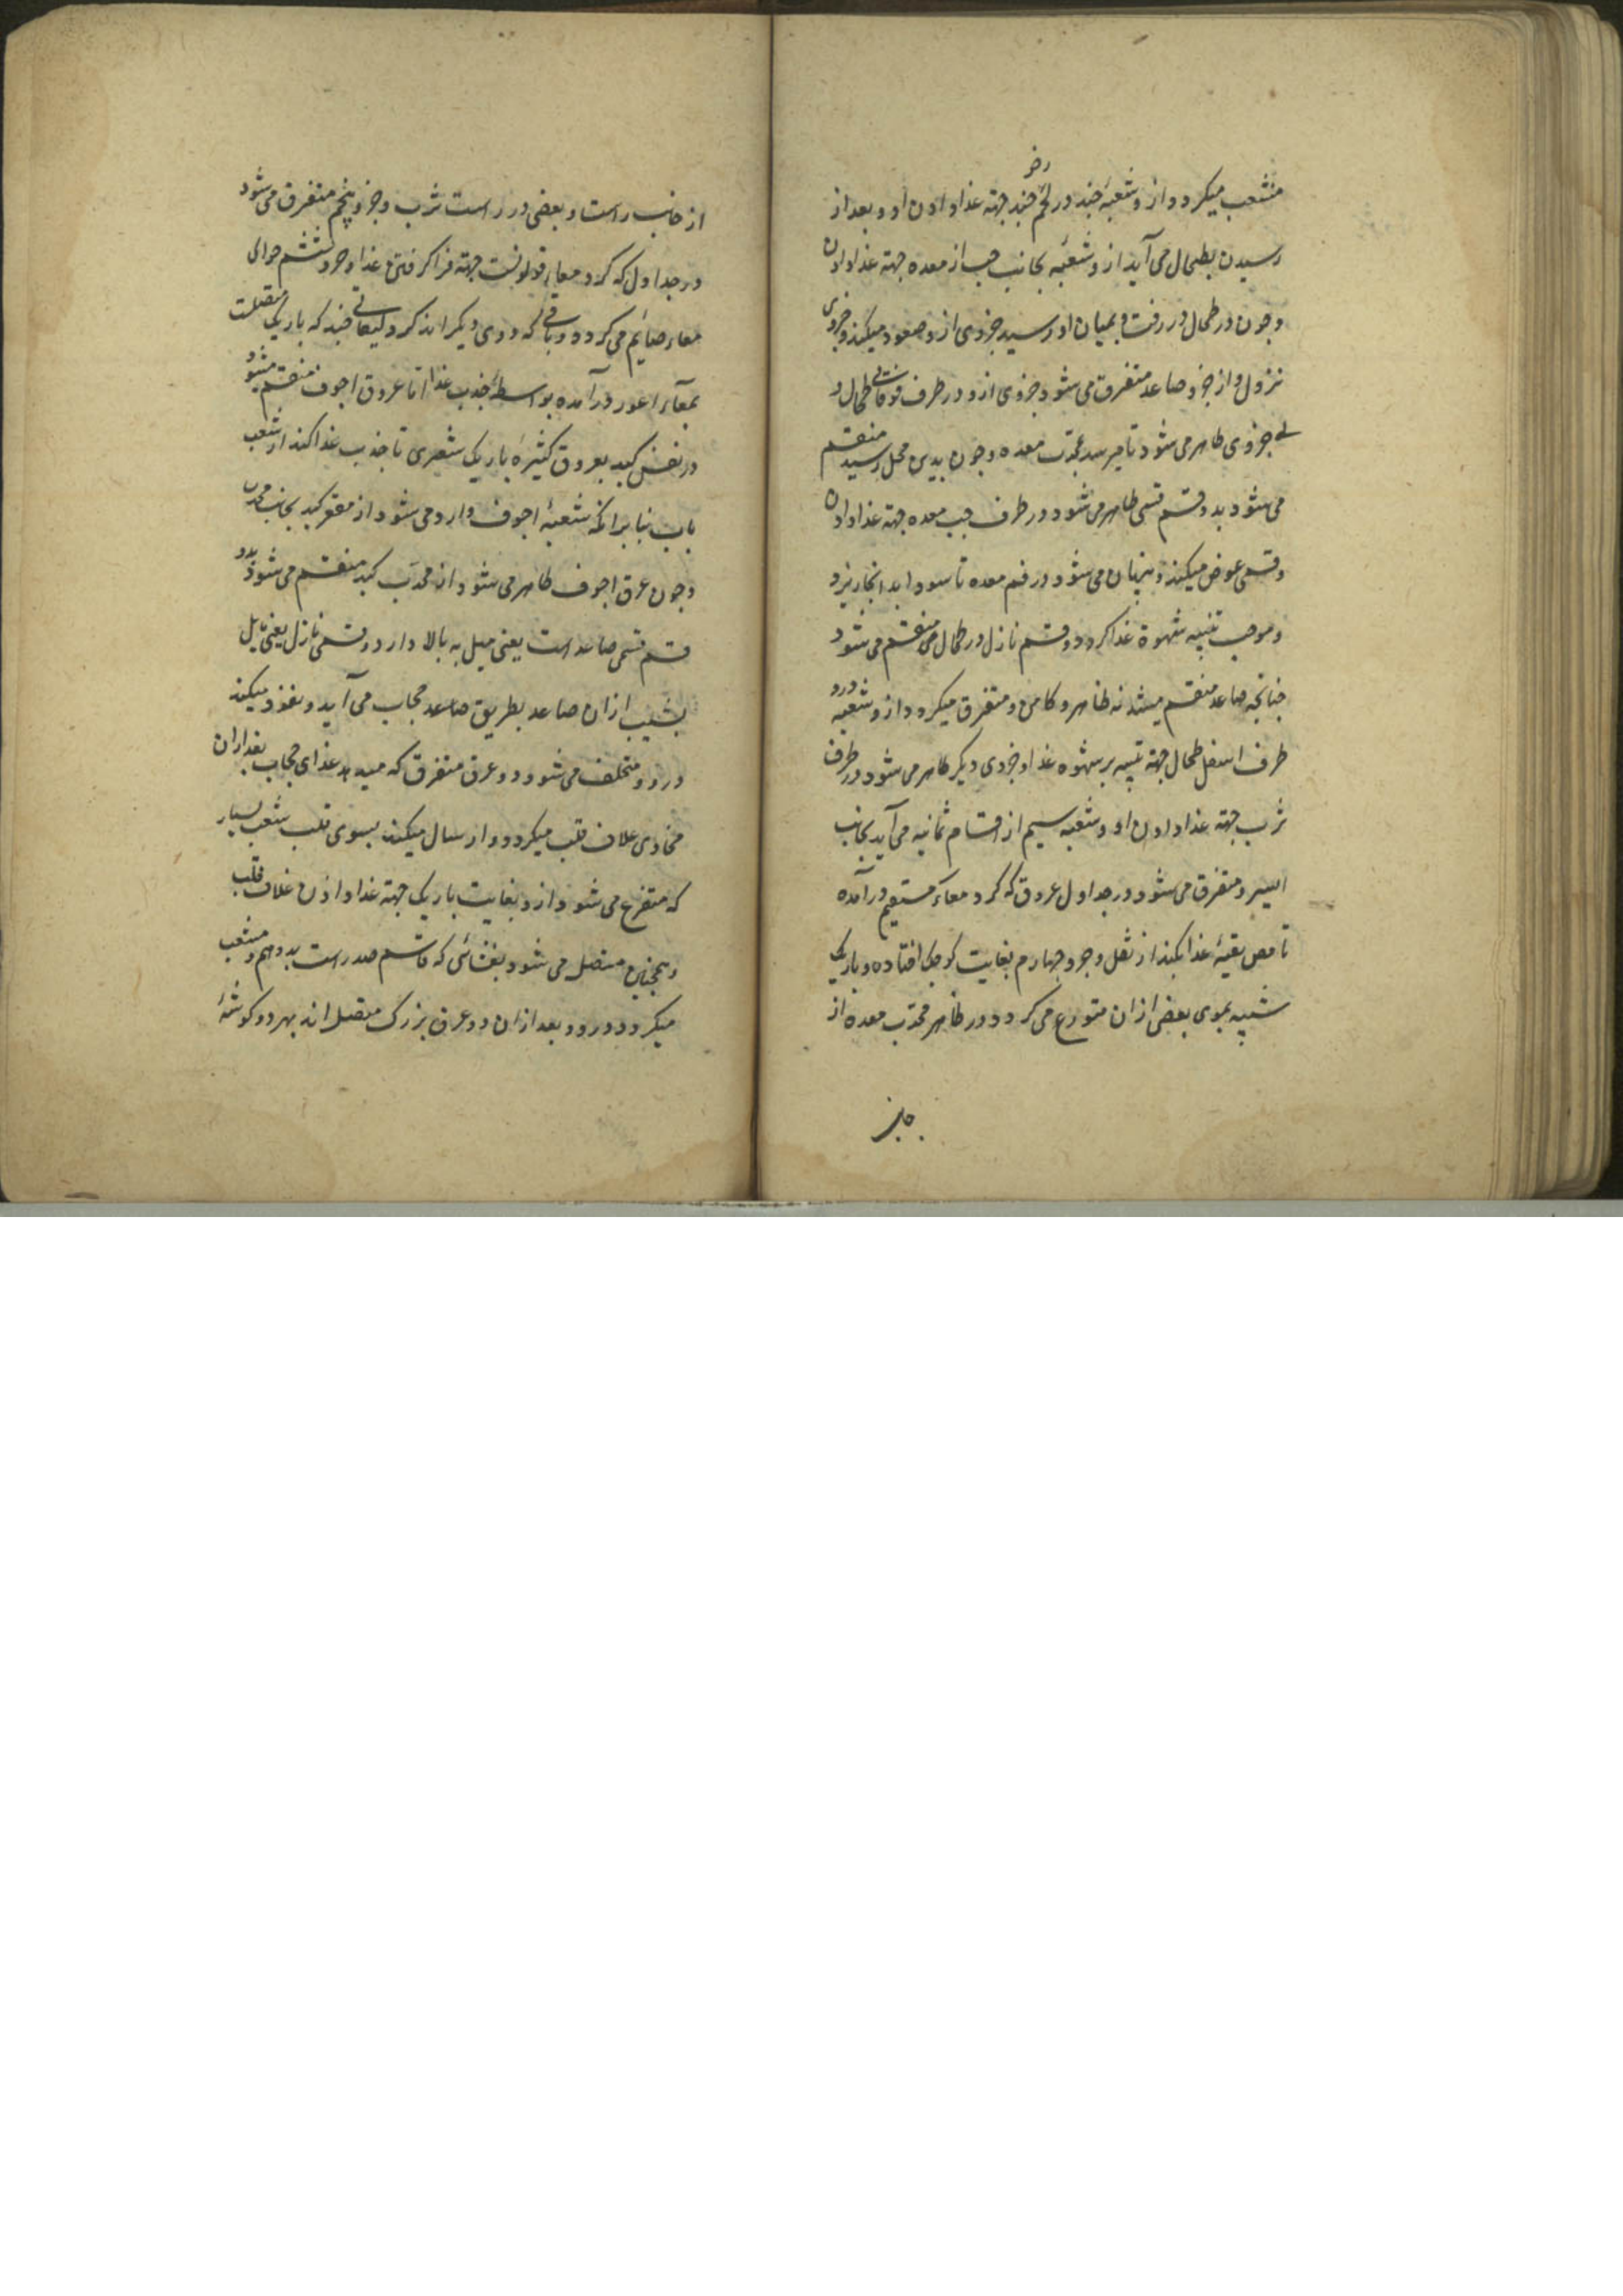 منشعب میکردد و ازو شعبۀ جند در لحم جند جهته غذا دادن او و بعد از
رسیدن بطحال می آید ازو شعبۀ بجانب جب از معده جهته غذا دادن
و جون در طحال در رفت و بمیان او رسید جزوی ازو صعود میکند و جزوی
نزول و از جزو صاعد متفرق می شود جزوی ازو در طرف فوقانی طحال و
جزوی ظاهر می شود تا میرسد بمحدب معده و جون بدین محل رسید منقسم
می شود بدو قسم قسمی ظاهر می شود در طرف جب معده جهته غذا دادن
و قسمی غوض میکند و پنهان می شود در فم معده تا سودا بد انجا ریزد
و موجب تنبیه شهوة غذا کردد و قسم نازل در طحال منقسم می شود
جنانجه صاعد منقسم میشد نه ظاهر و کامن و متفرق میکردد ازو شعبه درو
طرف اسفل طحال جهته تنبیه بر شهوه غذا و جزوی دیکر ظاهر می شود در طرف
ثرب جهته غذا دادن او و شعبه سیم از اقسام ثمانیه می آید بجانب
ایسر و متفرق می شود در جداول عروق که کرد معاء مستقیم در آمده
تا مص بقیۀ غذا بکند از ثفل و جزو جهارم بغایت کوجک افتاده و باریک
شبیه بموی بعضی ازان متوزع می کردد در ظاهر محدب معده از
جانب
از جانب راست و بعضی در راست ثرب و جزو پنجم متفرق می شود
در جداول که کرد معاء قولونست جهته فرا کرفتن غذا و جزو ششم حوالی
معاء صایم می کردد و باقی که دوی دیکر اند کرد لیفاتی جند که باریک متصلست
بمعاء اعور در آمده بواسطۀ جذب غذا اما عروق اجوف منقسم میشود
در نفس کبد بعروق کثیرۀ باریک شعری تا جذب غذا کند از شعب
باب بنا برانکه شعبۀ اجوف وارد می شود از مقعر کبد بجانب محدب
و جون عرق اجوف ظاهر می شود از محدب کبد منقسم می شود بدو
قسم قسمی صاعد است یعنی میل به بالا دارد و قسمی نازل یعنی مایل
بشیب ازان صاعد بطریق صاعد حجاب می آید و نفوذ میکند
درو و متخلف می شود دو عرق متفرق که میدهد غذای حجاب بعد ازان
محاذی غلاف قلب میکردد و ارسال میکند بسوی قلب شعب بسیار
که متفرع می شود ازو بغایت باریک جهته غذا دادن غلاف قلب
و همجنین متصل می شود بغشائی که قاسم صدر است بدو هم و منشعب
میکردد درو و بعد ازان دو عرق بزرک متصل اند بهر دو کوشۀ